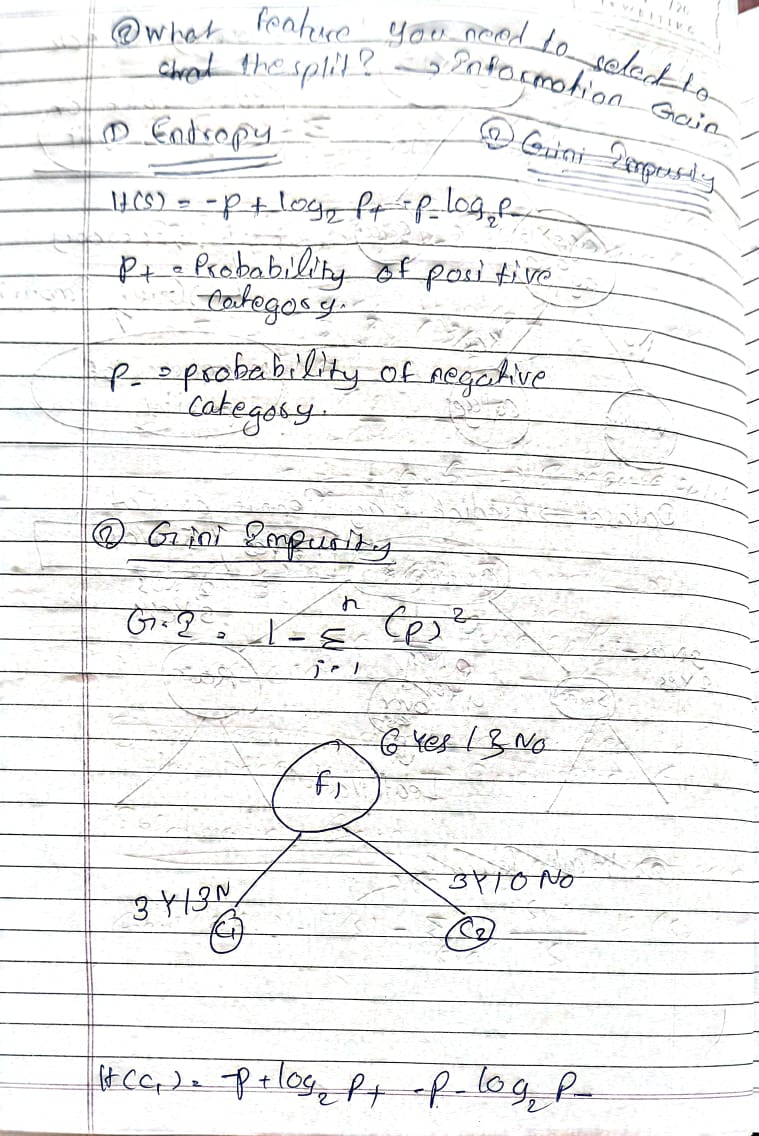 ② What feature you need to select to
start the split? → Information Gain
① Entropy
② Gini Impurity
H(S) = -p+ log₂ p+ - p- log₂ p-
p+ = Probability of positive
Category.
p- = probability of negative
category.
② Gini Impurity
G.I = 1 - Σ (p)²
n
i=1
6 Yes / 3 No
f1
3Y/3N
3Y/0 No
C1
C2
H(C1) = -p+ log₂ p+ - p- log₂ p-